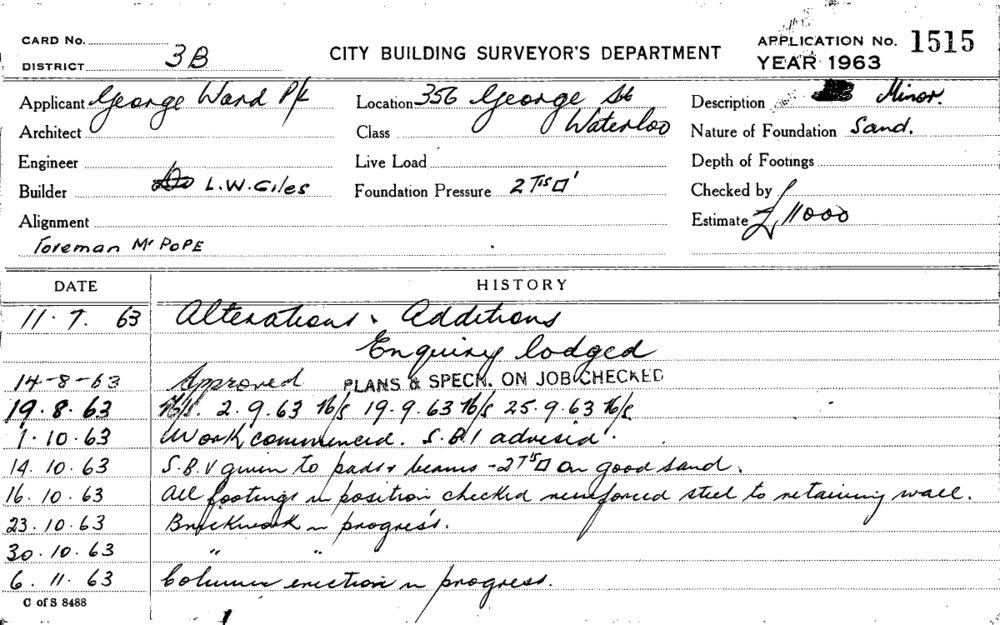 CARD No.
DISTRICT 3B
CITY BUILDING SURVEYOR'S DEPARTMENT
APPLICATION No. 1515
YEAR 1963
Applicant George Ward P/L
Location 356 George St
Waterloo
Description Minor.
Architect
Class
Nature of Foundation Sand.
Engineer
Live Load
Depth of Footings
Builder L.W. Giles
Foundation Pressure 2 Tns □'
Checked by
Alignment
Estimate £11000
Foreman Mr POPE
DATE
HISTORY
11. 7. 63 Alterations & Additions
Enquiry lodged
14-8-63 Approved PLANS & SPECN. ON JOB CHECKED
19. 8. 63 N/S. 2. 9. 63 N/S 19. 9. 63 N/S 25. 9. 63 N/S
1. 10. 63 Work commenced. S.B.I advised.
14. 10. 63 S.B.V given to pads & beams - 2 Tns □ on good sand.
16. 10. 63 All footings in position checked reinforced steel to retaining wall.
23. 10. 63 Brickwork in progress.
30. 10. 63 " "
6. 11. 63 Column erection in progress.
C of S 8488